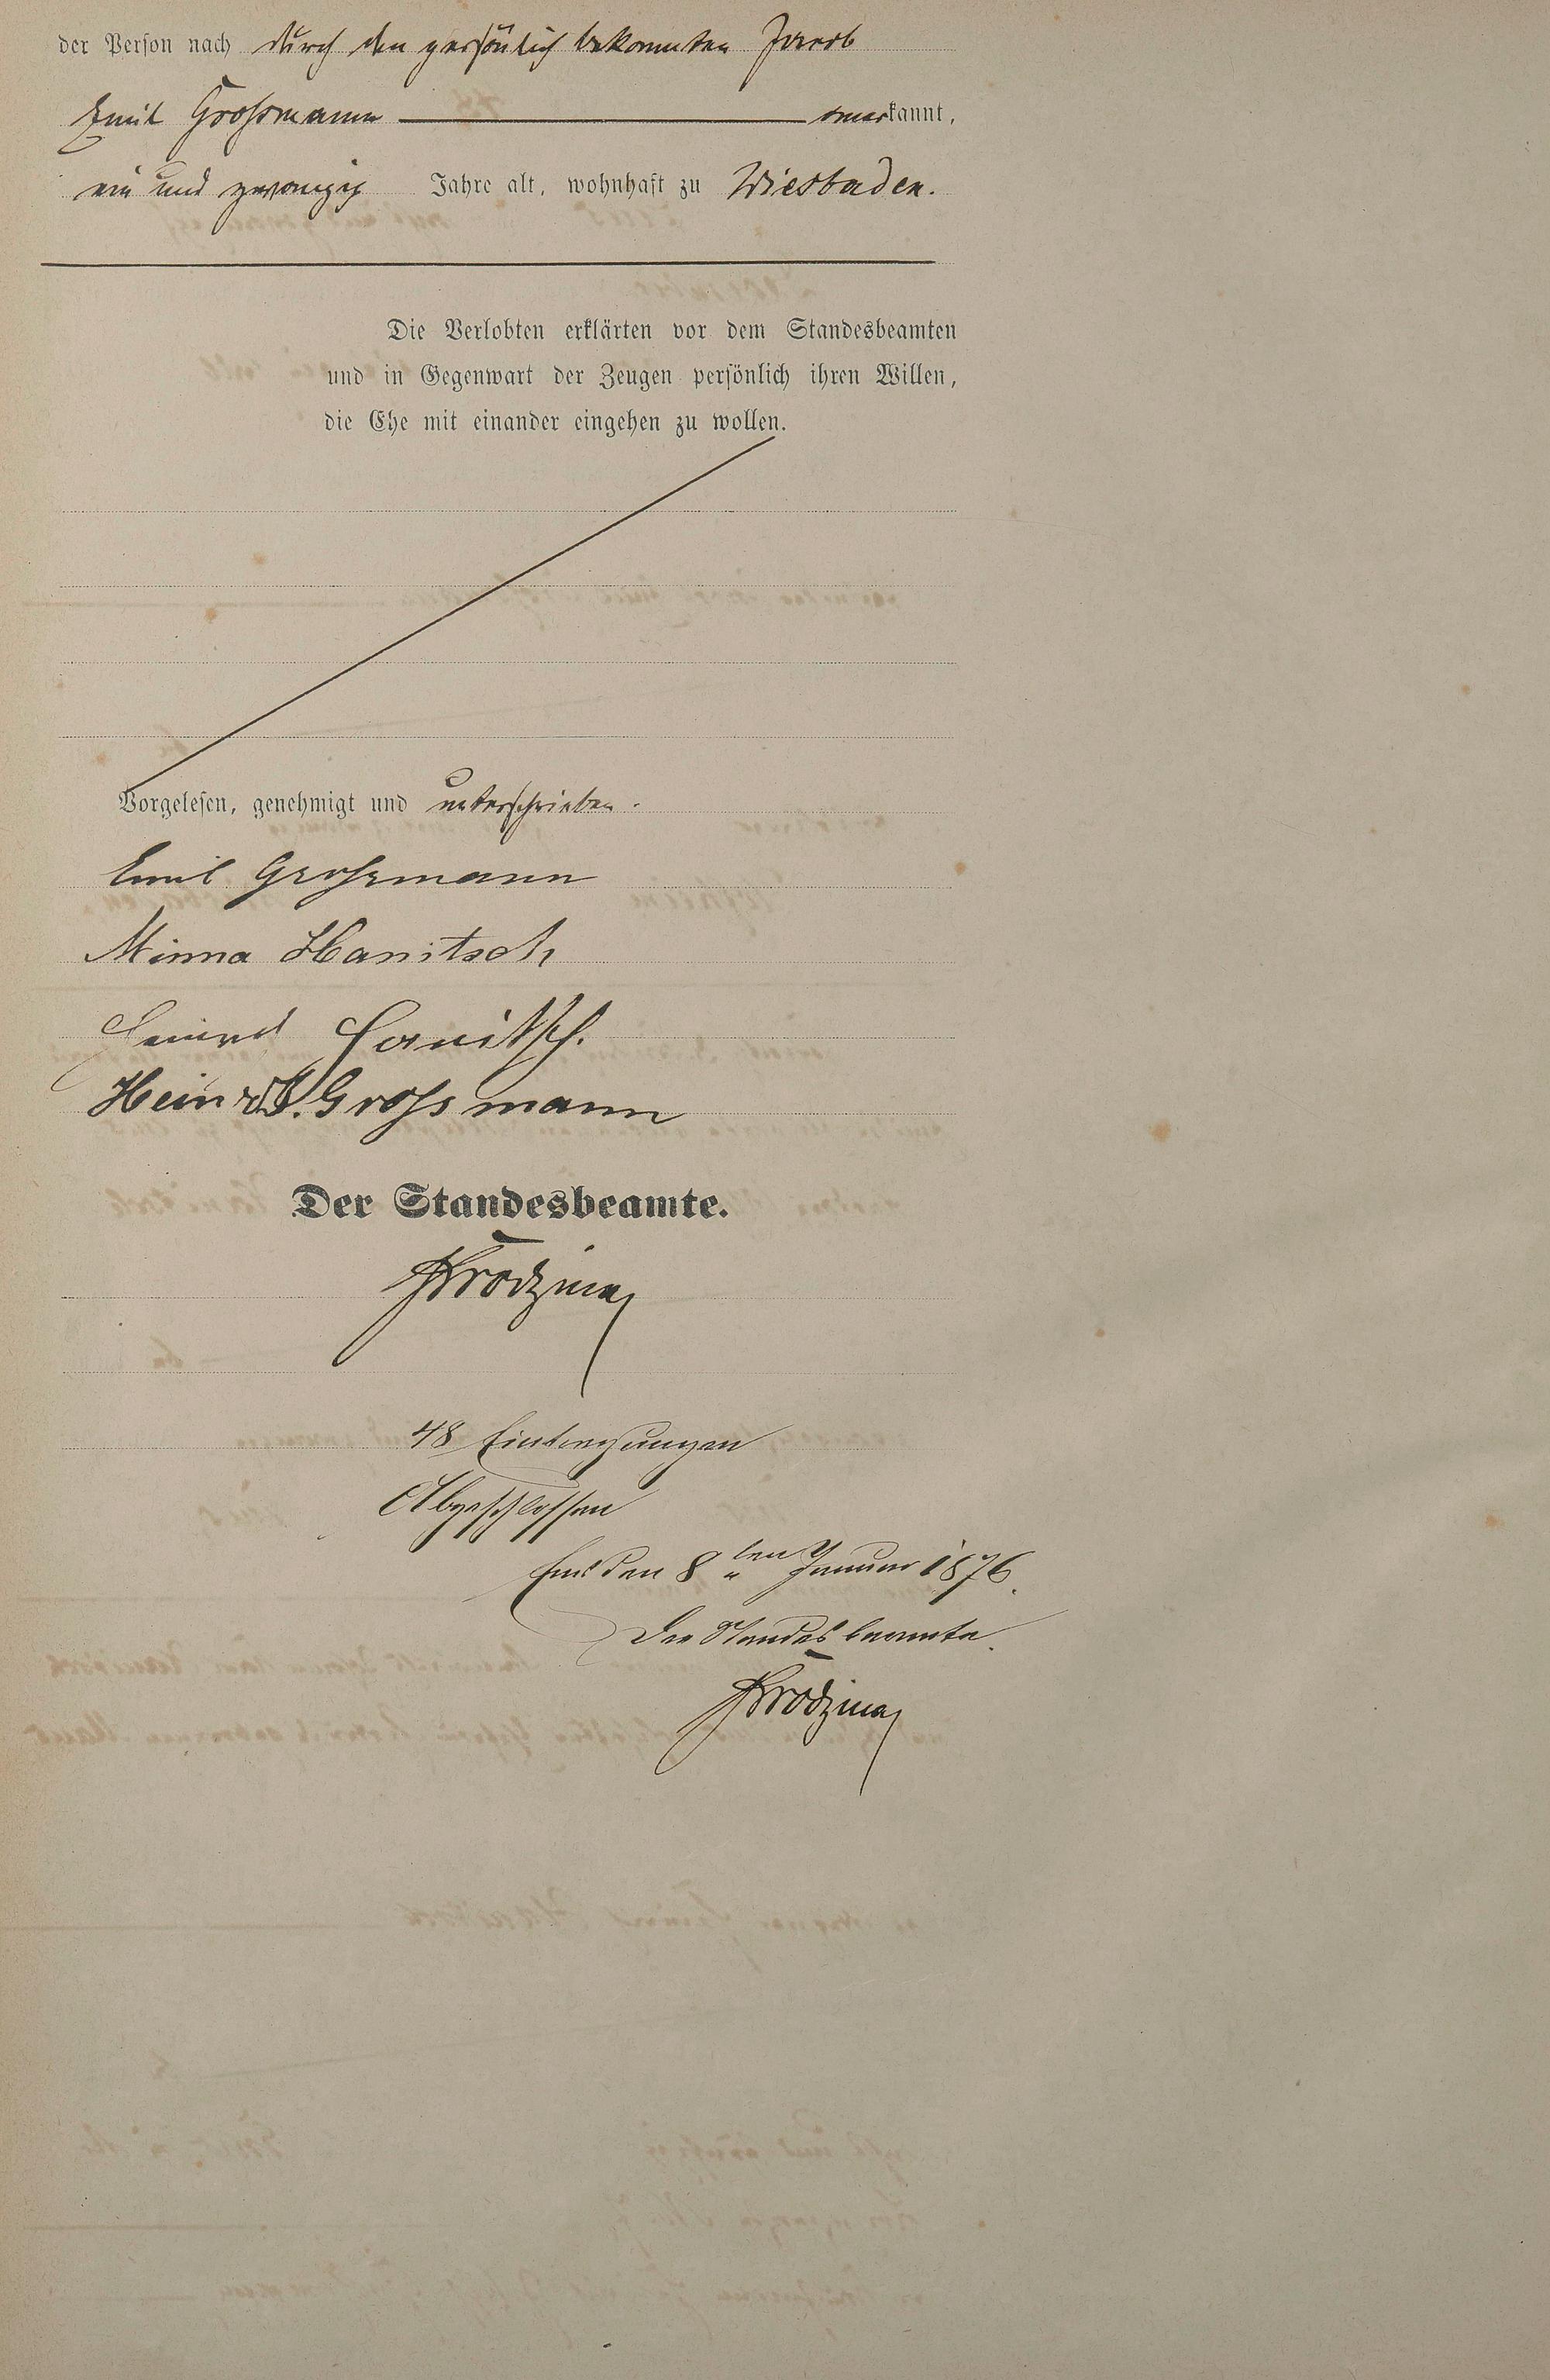 der Person nach durch den persönlich bekannten Jacob
Emil Großmann anerkannt,
ein und zwanzig Jahre alt, wohnhaft zu Wiesbaden.
Die Verlobten erklärten vor dem Standesbeamten
und in Gegenwart der Zeugen persönlich ihren Willen,
die Ehe mit einander eingehen zu wollen.
Vorgelesen, genehmigt und unterschrieben.
Emil Großmann
Minna Hanitsch
Hanitsch.
Heinr. J. Großmann
Der Standesbeamte.
48 Eintragungen
Abgeschlossen
Ems den 8ten Januar 1876.
Der Standesbeamte.